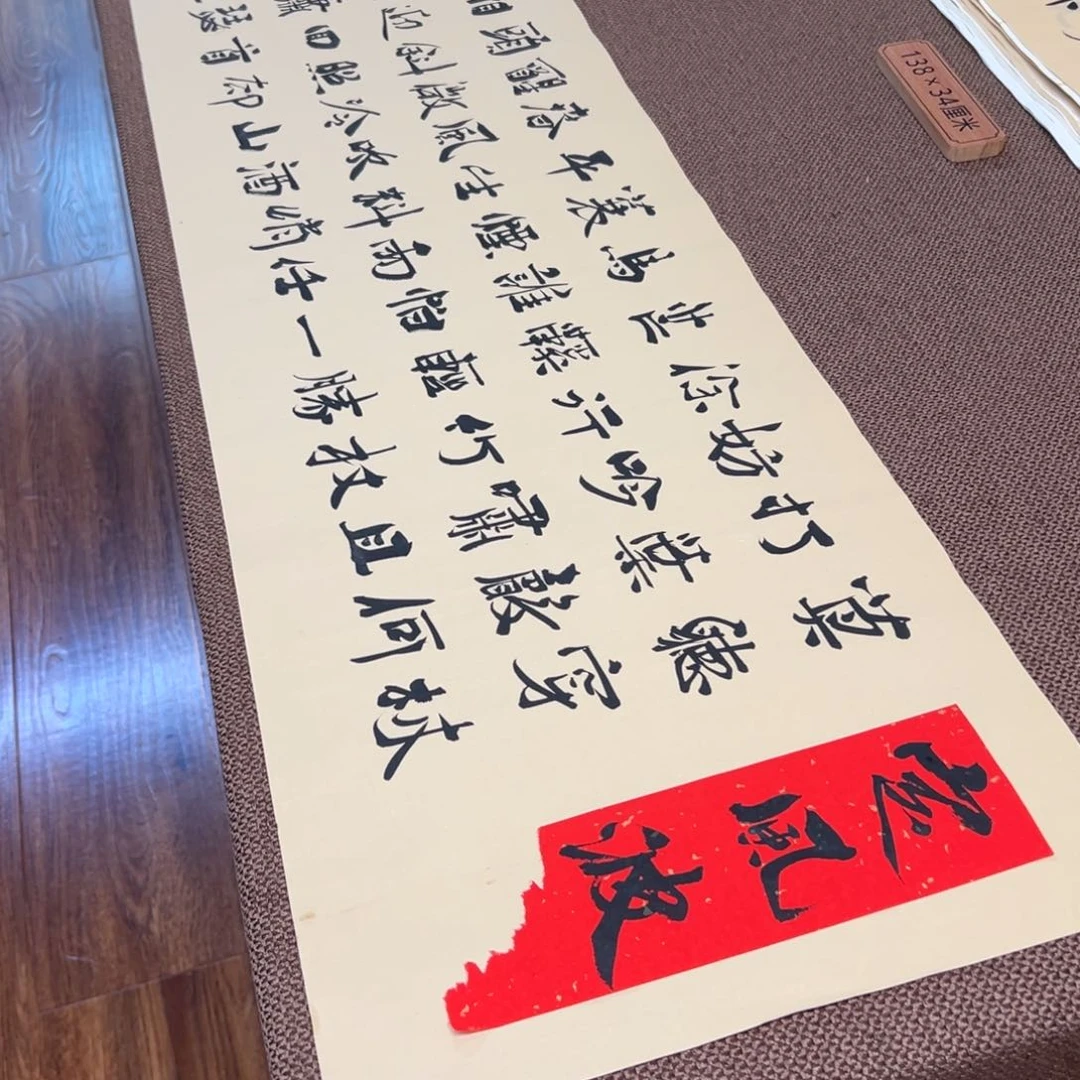 定風波
莫聽穿林
打葉聲何
妨吟嘯且
徐行竹杖
芒鞋輕勝
馬誰怕一
蓑煙雨任
平生料峭
春風吹酒
醒微冷山
頭斜照却
相迎回首
蕭瑟
138×34厘米